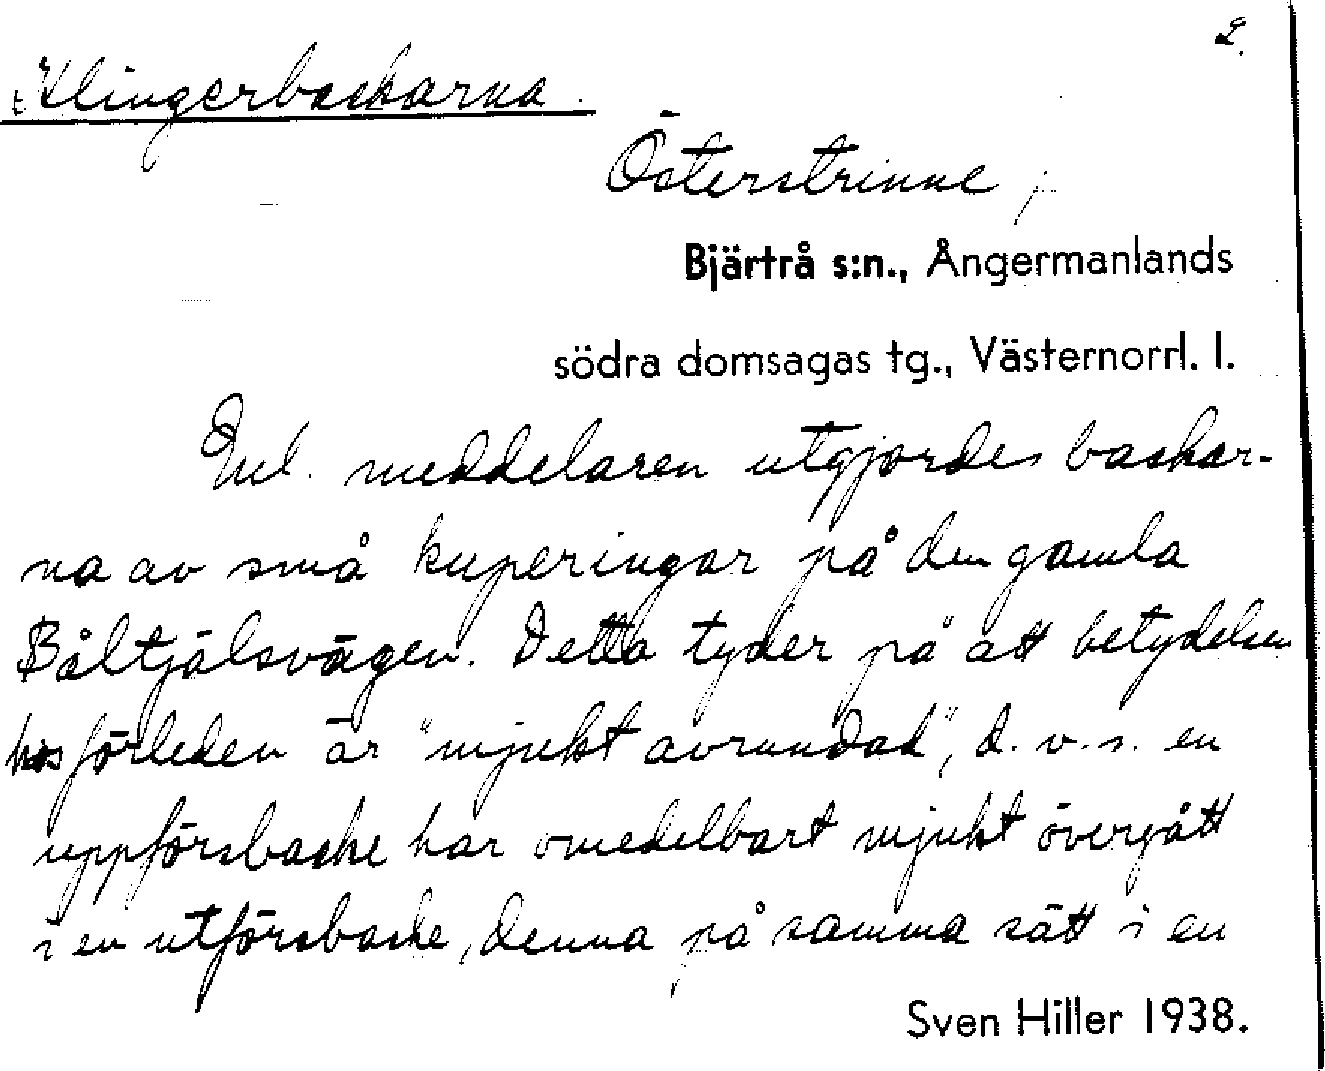 2.
Klingerbackarna.
Österstrinne,
Bjärtrå s:n., Ångermanlands
södra domsagas tg., Västernorrl. l.
Enl. meddelaren utgjordes backar-
na av små kuperingar på den gamla
Båltjälsvägen. Detta tyder på att betydelsen
hos förleden är "mjukt avrundad", d.v.s. en
uppförsbacke har omedelbart mjukt övergått
i en utförsbacke, denna på samma sätt i en
Sven Hiller 1938.